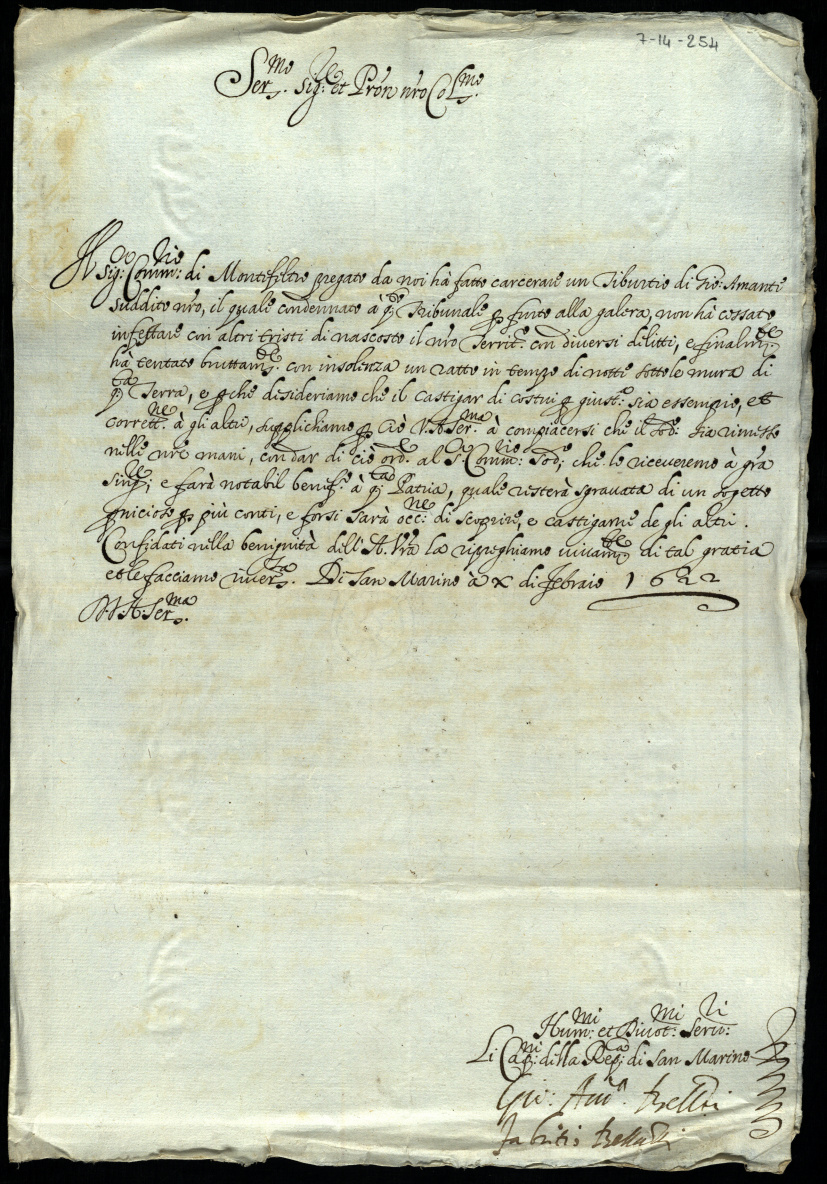 7-14-254
Ser.mo Sig.re et Pron nro Col.mo
Il Sig.r Comm.rio di Montefeltro pregato da noi hà fatto carcerare un Tiburtio di Gio: Amanti
suddito nro, il quale condennato a q.to Tribunale p furto alla galera, non hà cessato
infestare con altri tristi di nascosto il nro Territ.o con diversi delitti, e finalm.te
hà tentato bruttam.te con insolenza un ratto in tempo di notte sotto le mura di
q.ta Terra, e pche desideriamo che il castigar di costui p giust.a sia essempio, et
corrett.ne à gli altri, supplichiamo p ciò V. A. Ser.ma à compiacersi che il sod.o sia rimesso
nelle nre mani, con dar di ciò ord.e al S.r Comm.rio sod.o che lo riceveremo à gra
sing.re, e farà notabil benef.o à q.ta Patria, quale resterà sgravata di un sogetto
pnicioso p più conti, e forsi sarà occ.ne di scoprire, e castigarne de gli altri.
Confidati nella benignità dell'A. Vra La ripreghiamo vivam.te di tal gratia
et le facciamo river.za. Di San Marino à X di Febraio 1622
D. V. A. Ser.ma
Hum.mi et Divot.mi Serv.ri
Li Cap.ni della Rep.ca di San Marino
Gio: Ant.o Belli
Fabritio Belluzzi